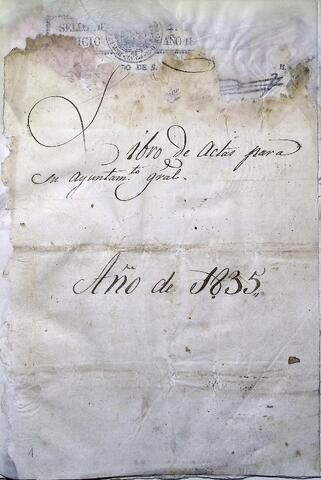 SELLO
AÑO
Libro de Actas para
su ayuntam.to gral.
Año de 1835,,
1